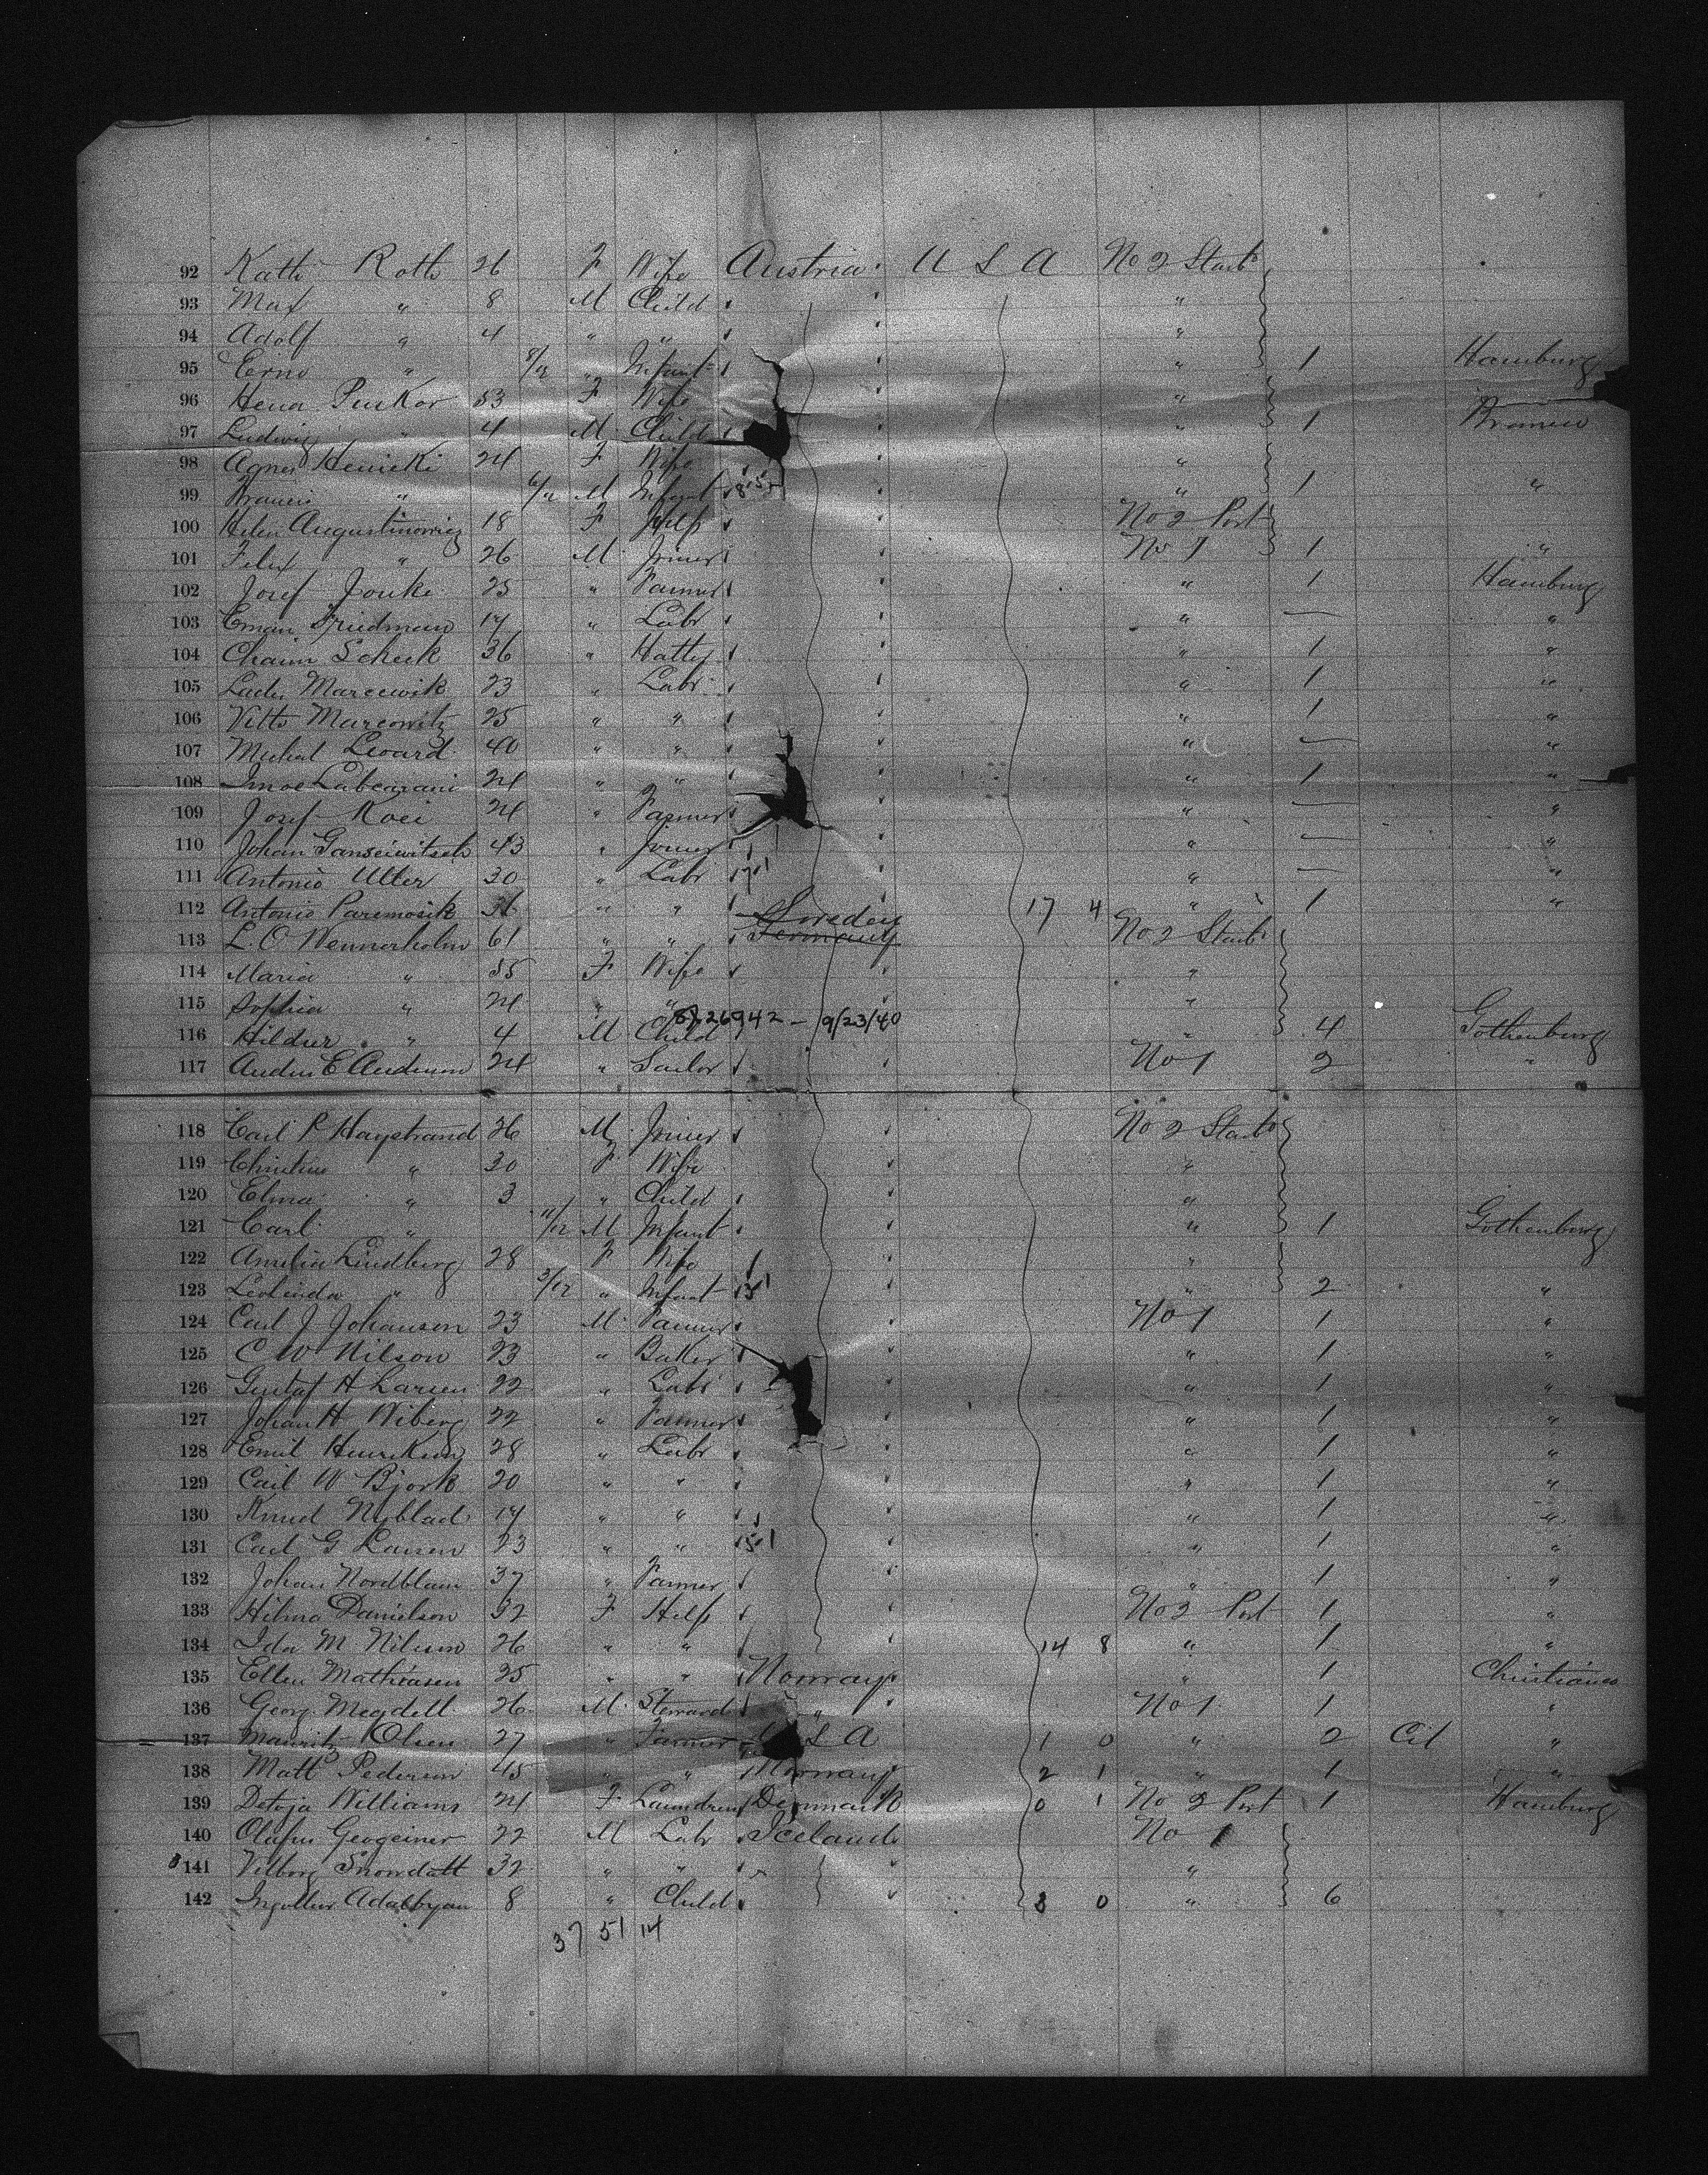 92 Kath Roth 26 F Wife Austria U S A No 2 Starb
93 Max " 8 M Child "
94 Adolf " 4 " " "
95 Erno " 8/12 " Infant " 1 Hamburg
96 Hena Puskor 53 F Wife "
97 Ludwig " 4 M Child " 1 Bremen
98 Agnes 24 F Wife "
99 " 6/12 M Infant " 1 "
100 Helen Augustinowicz 18 F Help No 2 Port
101 Felix " 26 M Joiner No 1 1 "
102 Josef Jouke 25 " Farmer " 1 Hamburg
103 Friedman 17 " Labr " — "
104 Chaim Scheck 36 " " 1 "
105 Marcewik 23 " Labr " 1 "
106 Marcowitz 25 " " " 1 "
107 Leoard 40 " " " — "
108 24 " " " 1 "
109 Josef Koci 24 " Farmer " — "
110 Johan 43 " Joiner " — "
111 Antonio Ulter 30 " Labr 17 " — "
112 Antonio Paremosik " " 17 4 " 1 "
Sweden
113 L. O Wennerholm 61 " " Germany No 2 Starb
114 Maria " 55 F Wife "
115 Sophia " 24 " " "
8226942 - 9/23/40
116 " 4 M Child " 4 Gothenburg
117 Anders E Anderson 24 " Sailor No 1 2 "
118 Carl P Haystrand 26 M Joiner No 2 Starb
119 " 30 F Wife "
120 Elma " 3 " Child "
121 Carl " 11/12 M Infant " 1 Gothenburg
122 Amelia Lindberg 28 F Wife "
123 Leolinda " 3/12 " Infant " 2 "
124 Carl J Johansen 23 M Farmer No 1 1 "
125 C W Nilson 23 " Baker " 1 "
126 Gustaf H Larsen 22 " Labr " 1 "
127 Johan H Wiberg 22 " Farmer " 1 "
128 Emil 28 " Labr " 1 "
129 Carl W Bjork 20 " " " 1 "
130 Knud Nyblad 17 " " " 1 "
131 Carl G Larsen 23 " " " 1 "
132 Johan Nordblam 37 " Farmer " 1 "
133 Hilma Danielson 32 F Help No 2 Port 1 "
134 Ida M Nilsson 26 " " 14 8 " 1 "
135 Ellen Mathiasen 25 " " Norway " 1 Christiania
136 Georg Megdell 26 M Steward " No 1 1 "
137 Mauritz Olsen 27 " Farmer U S A 1 0 " 2 Cit "
138 Matt Pederson 45 " " Norway 2 1 " 1 "
139 Detoja Williams 24 F Laundress Denmark 0 1 No 2 Port 1 Hamburg
140 Olafur Geogeiner 22 M Labr Iceland No 1
141 Vilborg Snowdatt 32 " " "
142 Adalbyan 8 " Child 3 0 " 6
37 51 14